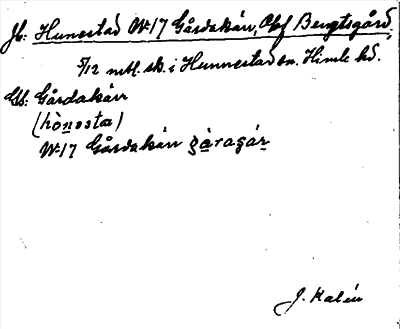 Jb: Hunestad Nr 17 Gårdakärr, Okf Bengtsgård,
5/12 mtl. sk. i Hunnestad sn. Himle hd.
Gs: Gårdakärr
(hònesta)
Nr 17 Gårdakärr gàragár
J. Kalén